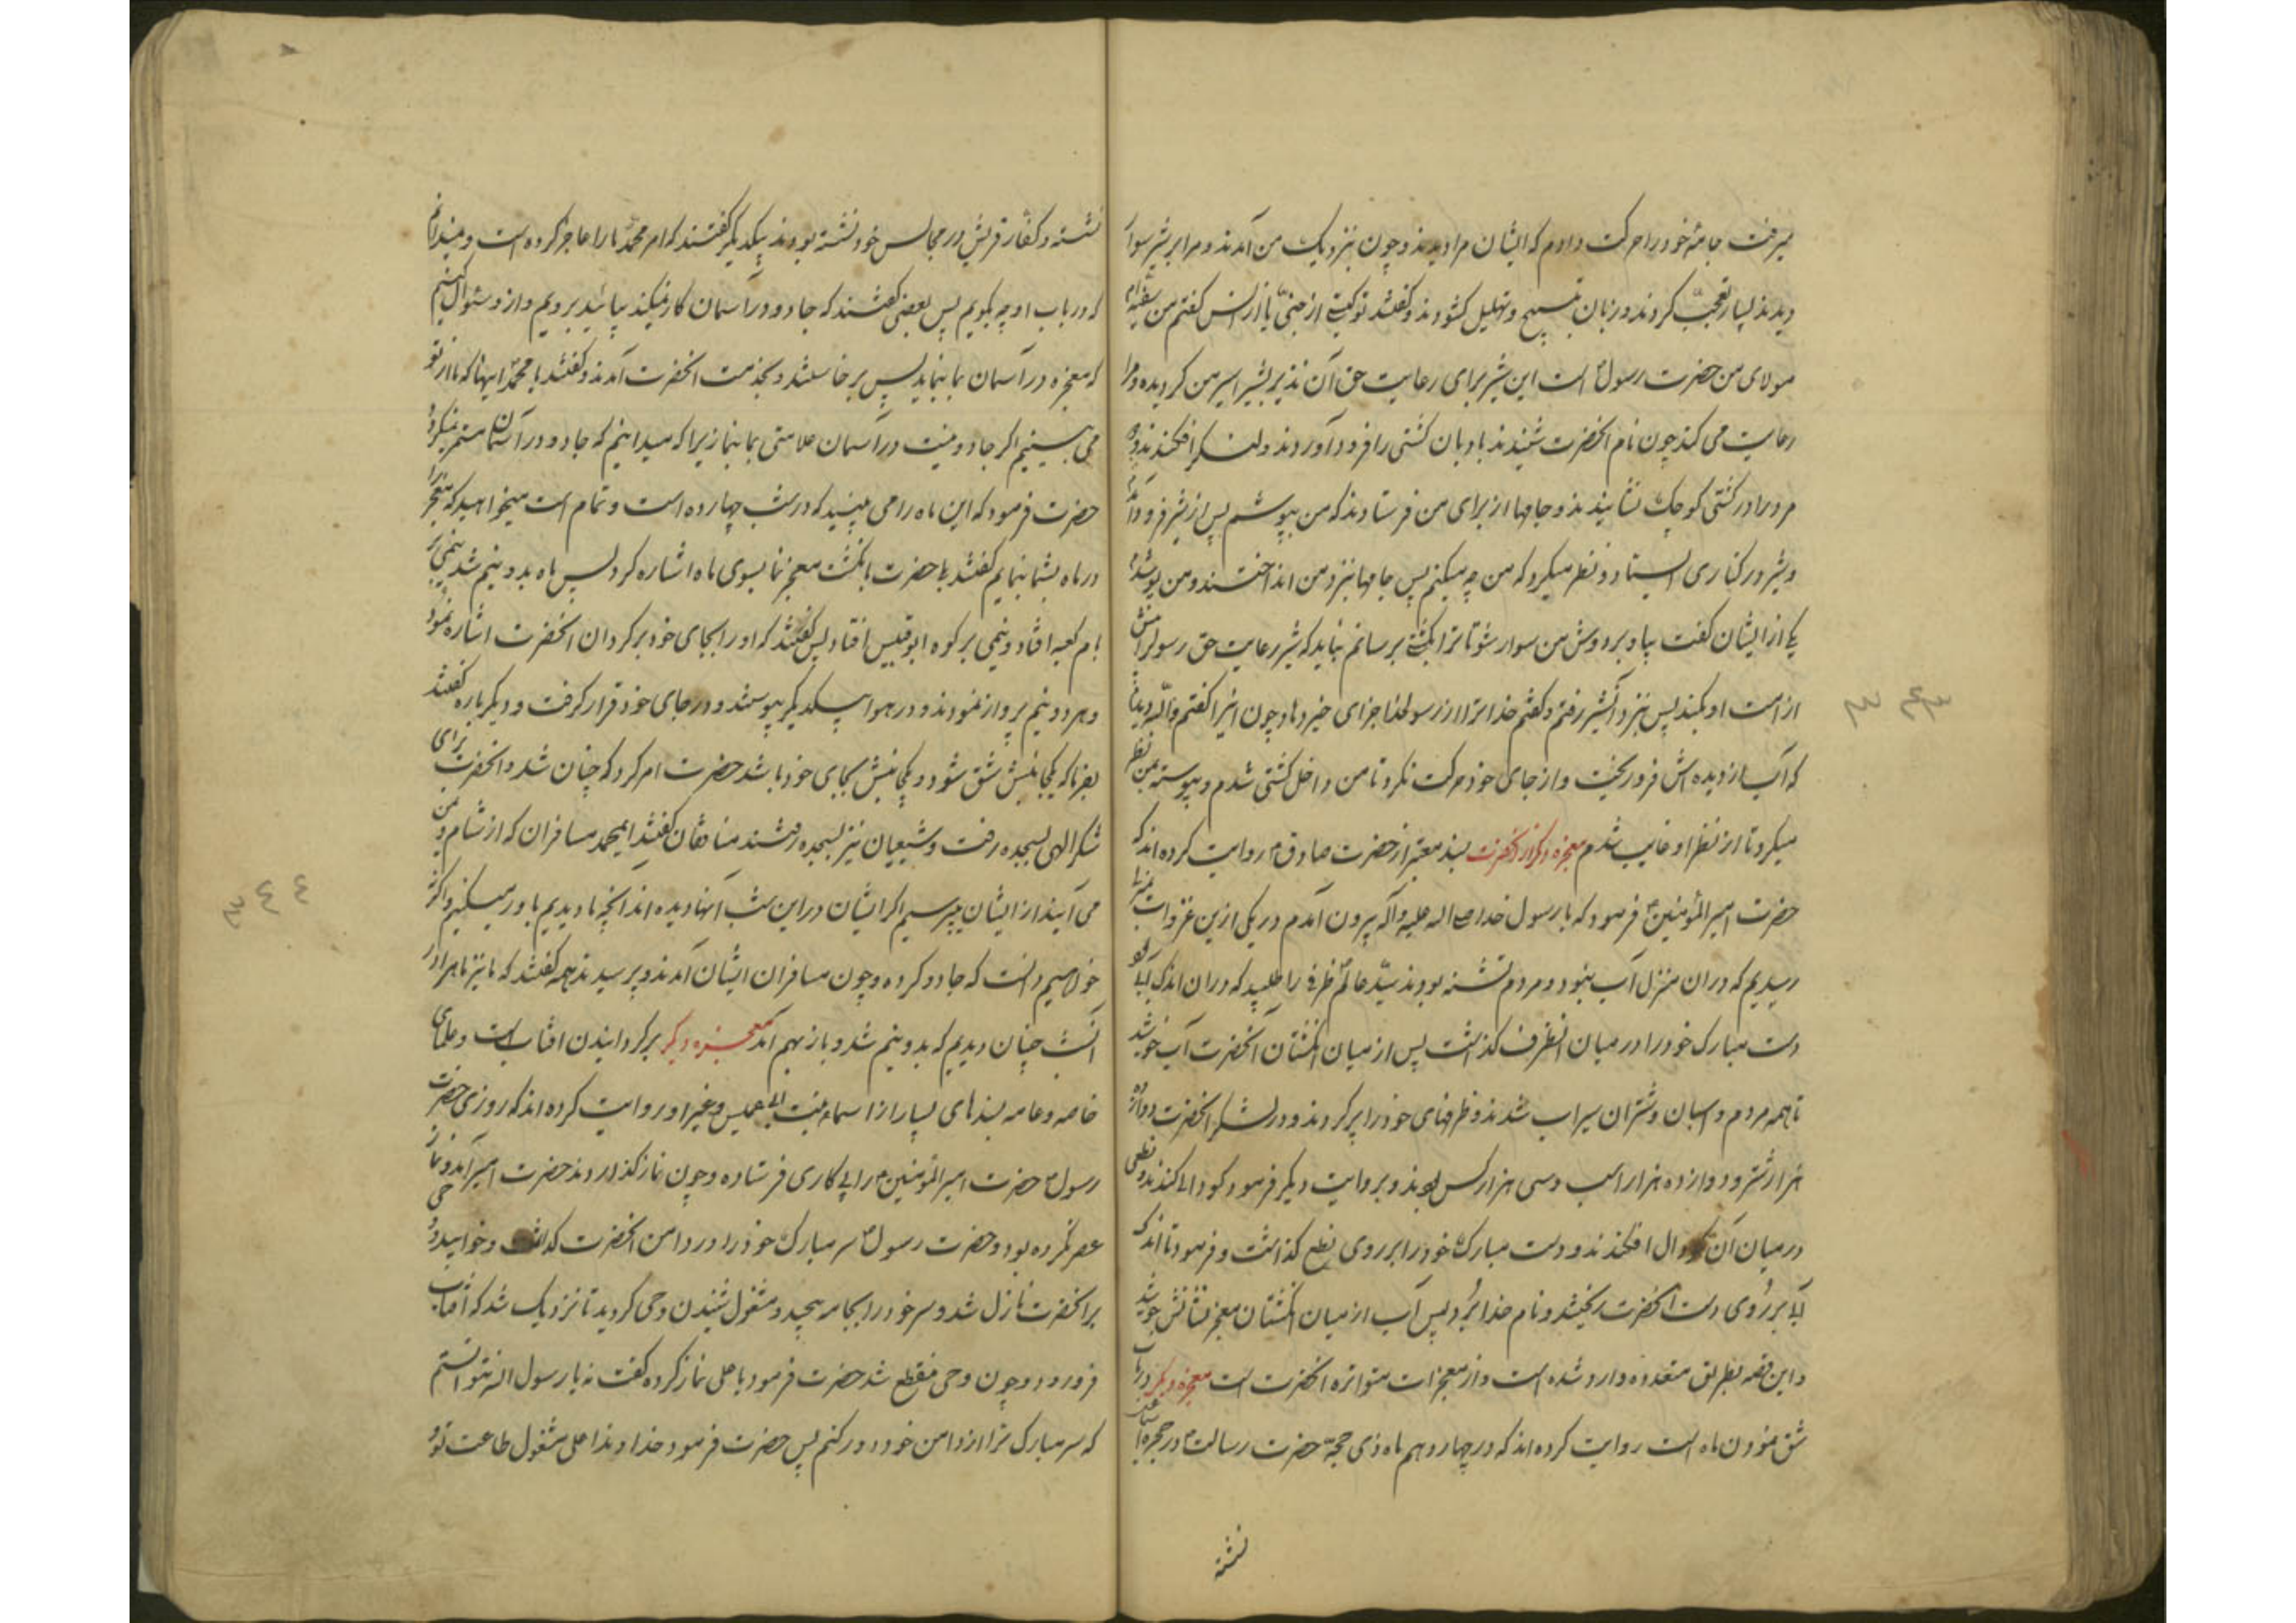 میرفت جامهٔ خود را حرکت دادم که ایشان مرا دیدند و چون بنزدیک من آمدند و مرا بر شیر سوار
دیدند بسیار تعجب کردند و زبان بتسبیح و تهلیل کشودند و کفتند تو کیستی از جنی یا از انس کفتم من سفینه ام
مولای من حضرت رسول است این شیر برای رعایت حق آن نذیر بشیر اسیر من کردیده و مرا
رعایت می کند چون نام انحضرت شنیدند بادبان کشتی را فرود آوردند و لنکر افکندند و دو
مرد را در کشتی کوچک نشانیدند و جامها از برای من فرستادند که من بپوشم پس از شیر فرود آمدم
و شیر در کناری ایستاد و نظر میکرد که من چه میکنم پس جامها بنزد من انداختند و من پوشیدم
یکی از ایشان کفت بیا و بر دوش من سوار شو تا ترا بکشتی برسانم نباید که شیر رعایت حق رسول را بیش
از امت او بکند پس بنزد آن شیر رفتم و کفتم خدا ترا از رسول خدا جزای خیر دهاد چون اینرا کفتم والله دیدم
که آب از دیده اش فرو ریخت و از جای خود حرکت نکرد تا من داخل کشتی شدم و پیوسته بمن نظر
میکرد تا از نظر او غایب شدم معجزه دیکر از انحضرت بسند معتبر از حضرت صادق روایت کرده اند که
حضرت امیر المؤمنین فرمود که با رسول خدا صلی اله علیه و آله بیرون آمدم در یکی از این غزوات بمنزلی
رسیدیم که در ان منزل آب نبود و مردم تشنه بودند سید عالم ظرفی را طلبید که در ان اندک آبی بود
دست مبارک خود را در میان انظرف کذاشت پس از میان انکشتان آنحضرت آب جوشید
تا همه مردم و اسبان و شتران سیراب شدند و ظرفهای خود را پر کردند و در لشکر انحضرت دوازده
هزار شتر و دوازده هزار اسب و سی هزار کس بودند و بروایت دیکر فرمود کودالی کندند و نطعی
در میان آن کودال افکندند و دست مبارک خود را بر روی نطع کذاشت و فرمود تا اندک
آبی بر روی دست انحضرت ریختند و نام خدا برد پس آب از میان انکشتان معجز نشانش جوشید
و این قصه بطریق متعدده وارد شده است و از معجزات متواتره انحضرت است معجزه دیکر در باب
شق نمودن ماه است روایت کرده اند که در چهاردهم ماه ذی حجه حضرت رسالت در حجره
نشسته
نشسته و کفار قریش در مجالس خود نشسته بودند بیکدیکر کفتند که امر محمد ما را عاجز کرده است و نمیدانیم
که در باب او چه بکویم پس بعضی کفتند که جادو در آسمان کار نمیکند بیائید برویم و از او سئوال کنیم
که معجزه در آسمان بما بنماید پس برخاستند و بخدمت انحضرت آمدند و کفتند یا محمد اینها که ما از تو
می بینیم اکر جادو نیست در آسمان علامتی بما بنما زیرا که میدانیم که جادو در آسمان مستمر نمیکردد
حضرت فرمود که این ماه را می بینید که در شب چهارده است و تمام است میخواهید که معجزه را
در ماه بشما بنمایم کفتند بلی حضرت بانکشت معجز نما بسوی ماه اشاره کرد پس ماه بدو نیم شد نیمی بر
بام کعبه افتاد و نیمی بر کوه ابوقبیس افتاد پس کفتند که او را بجای خود برکردان انحضرت اشاره نمود
و هر دو نیم پرواز نمودند و در هوا بیکدیکر پیوستند و در جای خود قرار کرفت و دیکر باره کفتند
بفرما که یکجانبش شق شود و یکجانبش بجای خود باشد حضرت امر کرد که چنان شد و انحضرت برای
شکر الهی بسجده رفت و شیعیان نیز بسجده رفتند منافقان کفتند ایمحمد مسافران که از شام و یمن
می آیند از ایشان میپرسیم اکر ایشان در این شب آنها دیده اند آنچه ما دیدیم باور میکنیم و اکرنه
خواهیم دانست که جادو کرده و چون مسافران ایشان آمدند و پرسیدند همه کفتند که ما نیز ماه را در
آنشب چنان دیدیم که بدو نیم شد و باز بهم آمد معجزه دیکر برکردانیدن افتاب است و علمای
خاصه و عامه بسندهای بسیار از اسماء بنت عمیس و غیر او روایت کرده اند که روزی حضرت
رسول حضرت امیر المؤمنین را پی کاری فرستاده و چون نماز کذاردند حضرت امیر آمد و نماز
عصر نکرده بود و حضرت رسول سر مبارک خود را در دامن انحضرت کذاشت و خوابید و وحی
بر انحضرت نازل شد و سر خود را بجامه پیچید و مشغول شنیدن وحی کردید تا نزدیک شد که آفتاب
فرو رود و چون وحی منقطع شد حضرت فرمود یا علی نماز کرده کفت نه یا رسول اله نتوانستم
که سر مبارک ترا از دامن خود دور کنم پس حضرت فرمود خداوندا علی مشغول طاعت تو و